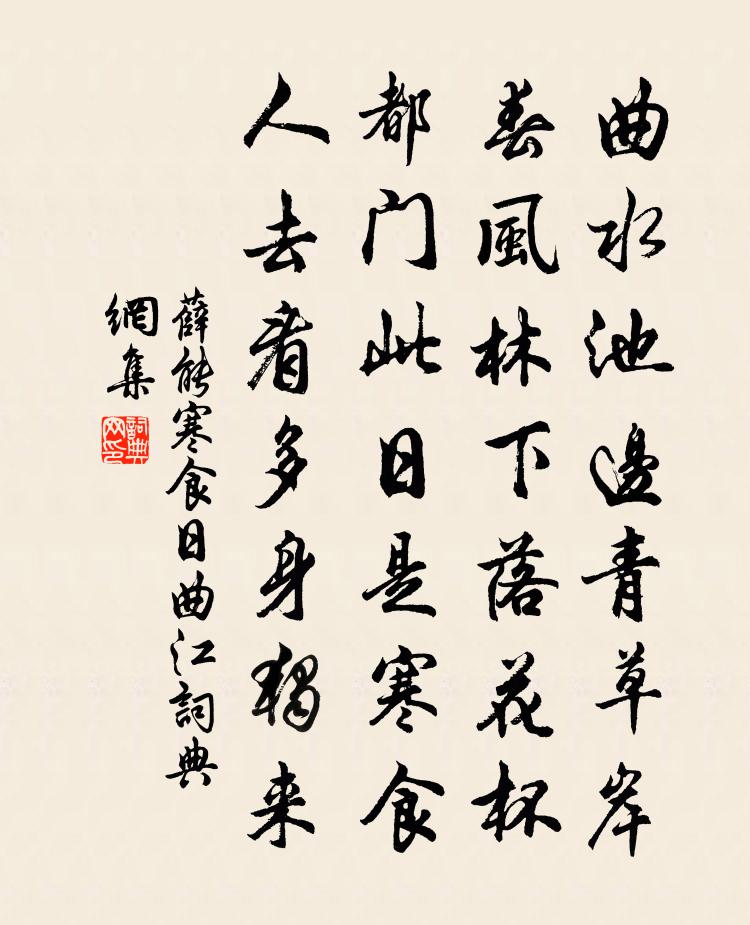 曲水池邊青草岸
春風林下落花杯
都门此日是寒食
人去看多身獨来
薛能寒食日曲江詞典
網集
詞典
网印